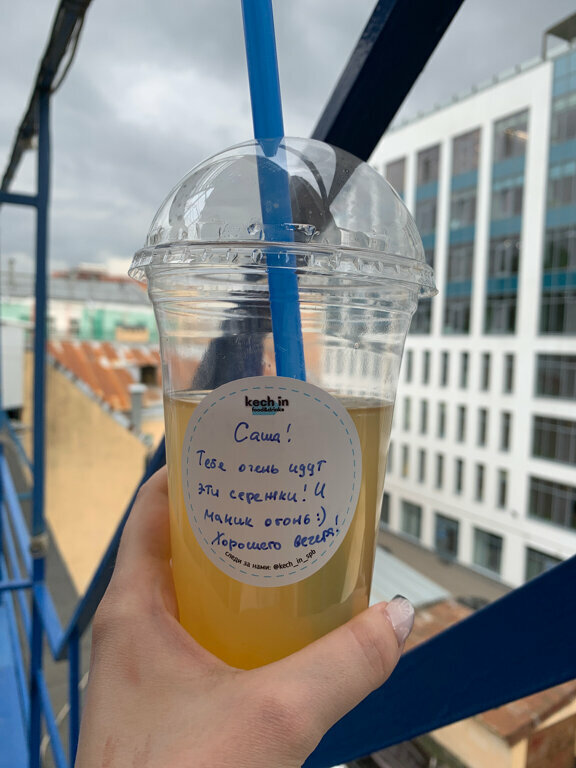 kech in
food&drinks
Саша!
Тебе очень идут
эти сережки! И
маник огонь :)
Хорошего вечера!
следи за нами: @kech_in_spb